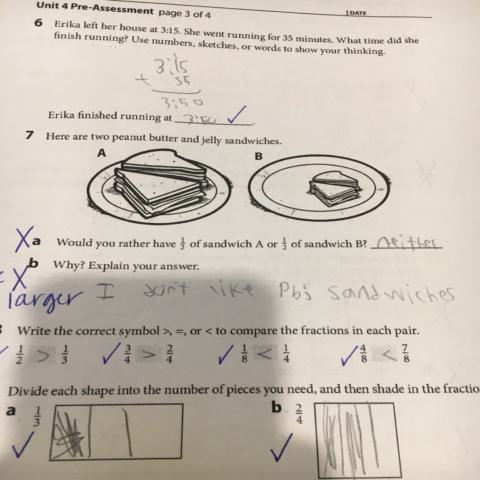 Unit 4 Pre-Assessment page 3 of 4
DATE
6 Erika left her house at 3:15. She went running for 35 minutes. What time did she
finish running? Use numbers, sketches, or words to show your thinking.
3:15
+ 35
3:50
Erika finished running at 3:50 ✓.
7 Here are two peanut butter and jelly sandwiches.
A B
X a Would you rather have 1/2 of sandwich A or 1/2 of sandwich B? neither
X b Why? Explain your answer.
larger I don't like Pb's sandwiches
Write the correct symbol >, =, or < to compare the fractions in each pair.
✓ 1/2 > 1/3 ✓ 3/4 > 2/4 ✓ 1/8 < 1/4 ✓ 4/8 < 7/8
Divide each shape into the number of pieces you need, and then shade in the fractio
a 1/3 ✓ b 2/4 ✓